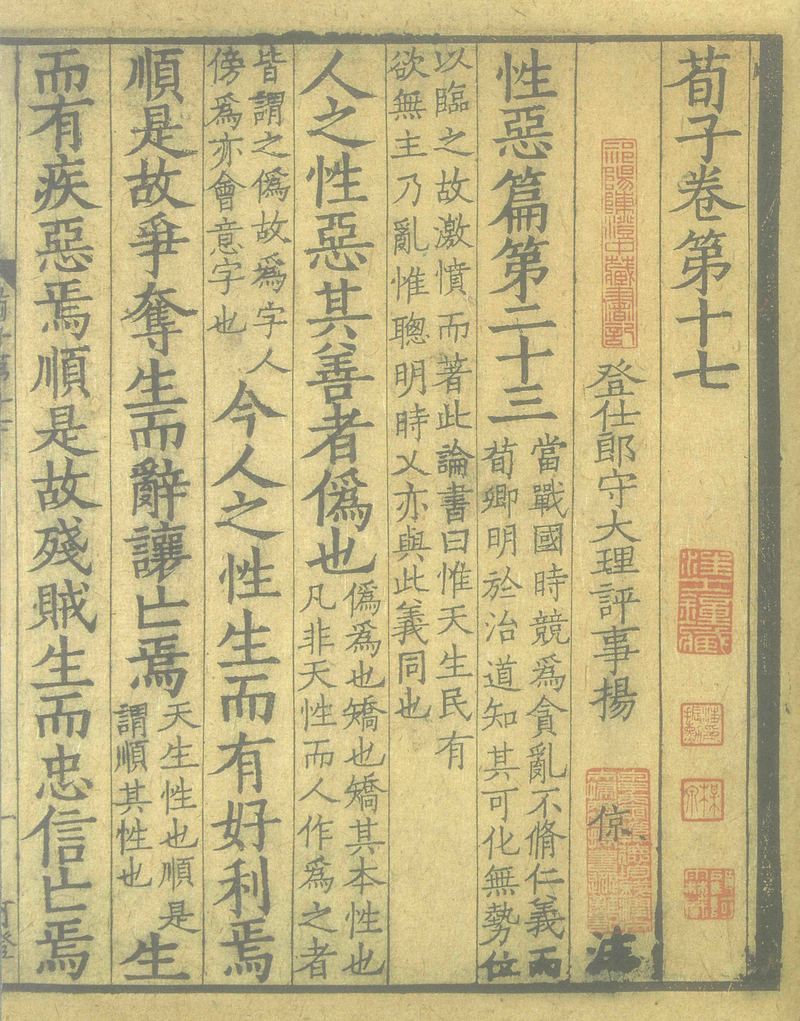 荀子卷第十七
汪士鐘藏
祁陽陳澄中藏書記
登仕郎守大理評事揚倞注
性惡篇第二十三當戰國時競爲貪亂不脩仁義而荀卿明於治道知其可化無勢位
以臨之故激憤而著此論書曰惟天生民有欲無主乃亂惟聰明時乂亦與此義同也
人之性惡其善者僞也僞爲也矯也矯其本性也凡非天性而人作爲之者
皆謂之僞故爲字人傍爲亦會意字也今人之性生而有好利焉
順是故爭奪生而辭讓亡焉天生性也順是謂順其性也生
而有疾惡焉順是故殘賊生而忠信亡焉